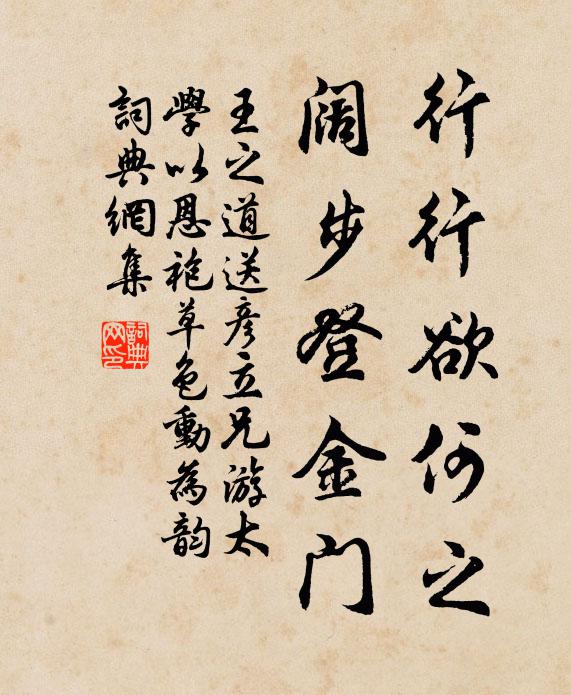 行行欲何之
阔步登金门
王之道送彦立兄游太
學以恩袍草色動為韵
詞典網集
詞典网印